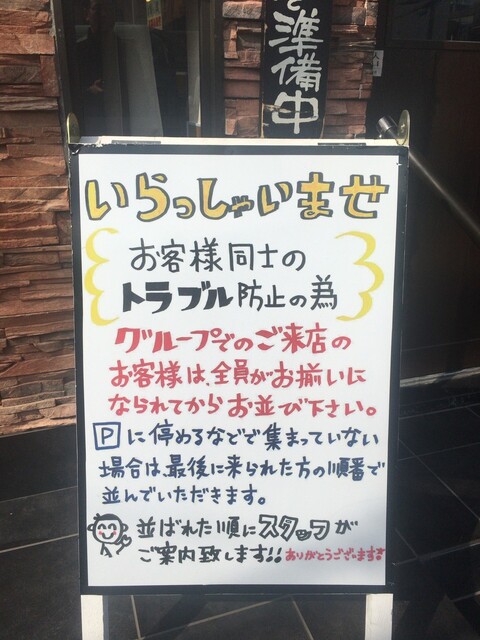 準備中
いらっしゃいませ
お客様同士の
トラブル防止の為
グループでのご来店の
お客様は、全員がお揃いに
なられてからお並び下さい。
Pに停めるなどで集まっていない
場合は、最後に来られた方の順番で
並んでいただきます。
並ばれた順にスタッフが
ご案内致します!!ありがとうございます!